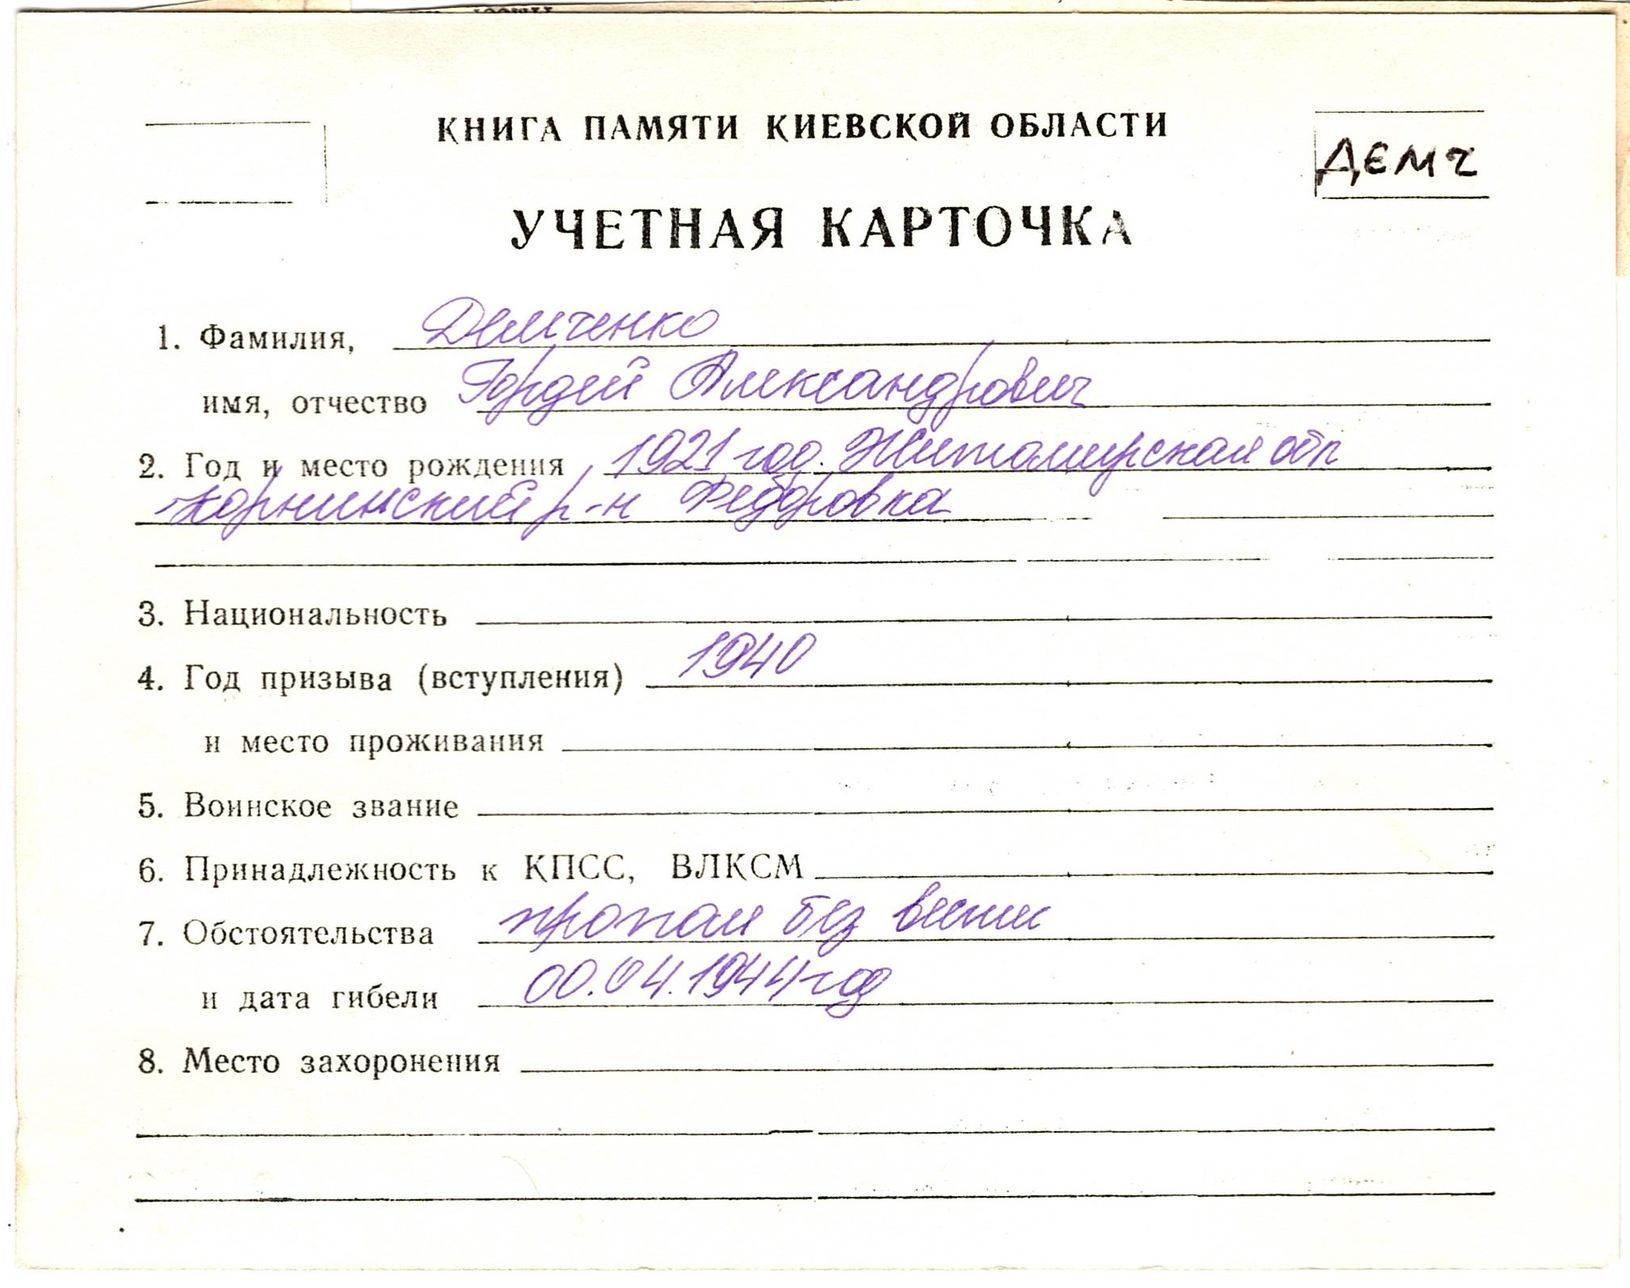 КНИГА ПАМЯТИ КИЕВСКОЙ ОБЛАСТИ
ДЕМЧ
УЧЕТНАЯ КАРТОЧКА
1. Фамилия, Демченко
имя, отчество Гордей Александрович
2. Год и место рождения 1921 год. Житомирская обл
Корнинский р-н Федоровка
3. Национальность
4. Год призыва (вступления) 1940
и место проживания
5. Воинское звание
6. Принадлежность к КПСС, ВЛКСМ
7. Обстоятельства пропал без вести
и дата гибели 00.04.1944 год
8. Место захоронения